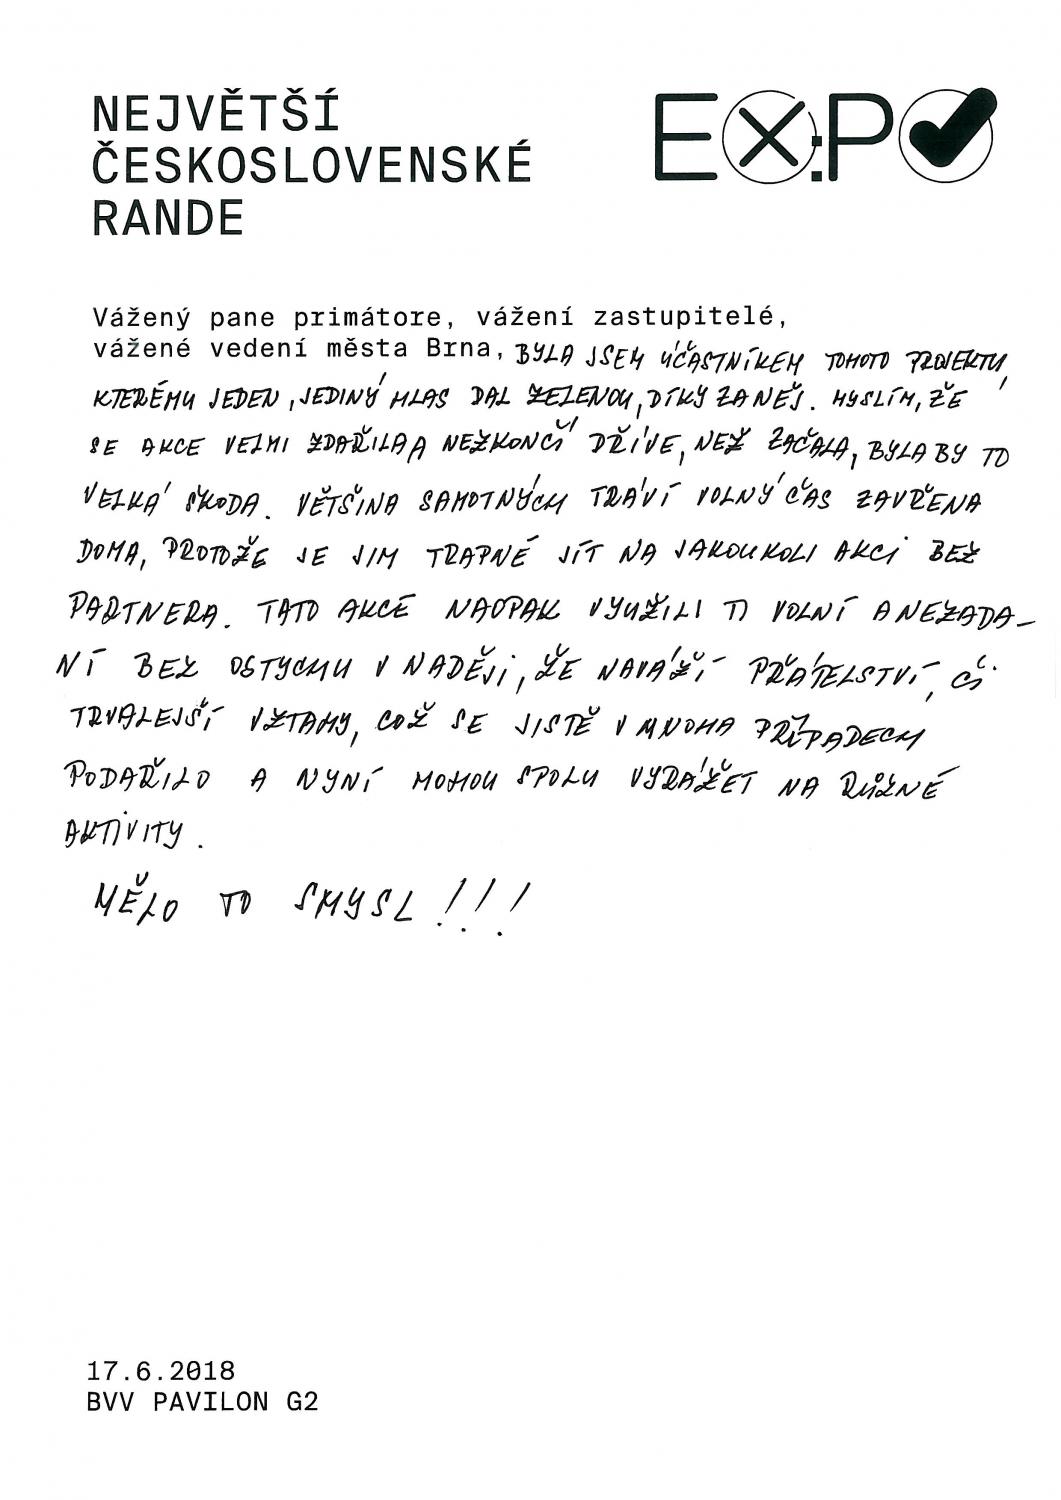 NEJVĚTŠÍ
ČESKOSLOVENSKÉ
RANDE
EX:PO
Vážený pane primátore, vážení zastupitelé,
vážené vedení města Brna, BYLA JSEM ÚČASTNÍKEM TOHOTO PROJEKTU,
KTERÉMU JEDEN, JEDINÝ HLAS DAL ZELENOU, DÍKY ZA NĚJ. MYSLÍM, ŽE
SE AKCE VELMI ZDAŘILA A NEŽ KONČÍ DŘÍVE, NEŽ ZAČALA, BYLA BY TO
VELKÁ ŠKODA. VĚTŠINA SAMOTNÝCH TRÁVÍ VOLNÝ ČAS ZAVŘENA
DOMA, PROTOŽE JE JIM TRAPNÉ JÍT NA JAKOUKOLI AKCI BEZ
PARTNERA. TATO AKCE NAOPAK VYUŽILI TI VOLNÍ A NEZADA-
NÍ BEZ OSTYCHU V NADĚJI, ŽE NAVÁŽÍ PŘÁTELSTVÍ, ČI
TRVALEJŠÍ VZTAHY, COŽ SE JISTĚ V MNOHA PŘÍPADECH
PODAŘILO A NYNÍ MOHOU SPOLU VYRÁŽET NA RŮZNÉ
AKTIVITY.
MĚLO TO SMYSL!!!
17.6.2018
BVV PAVILON G2